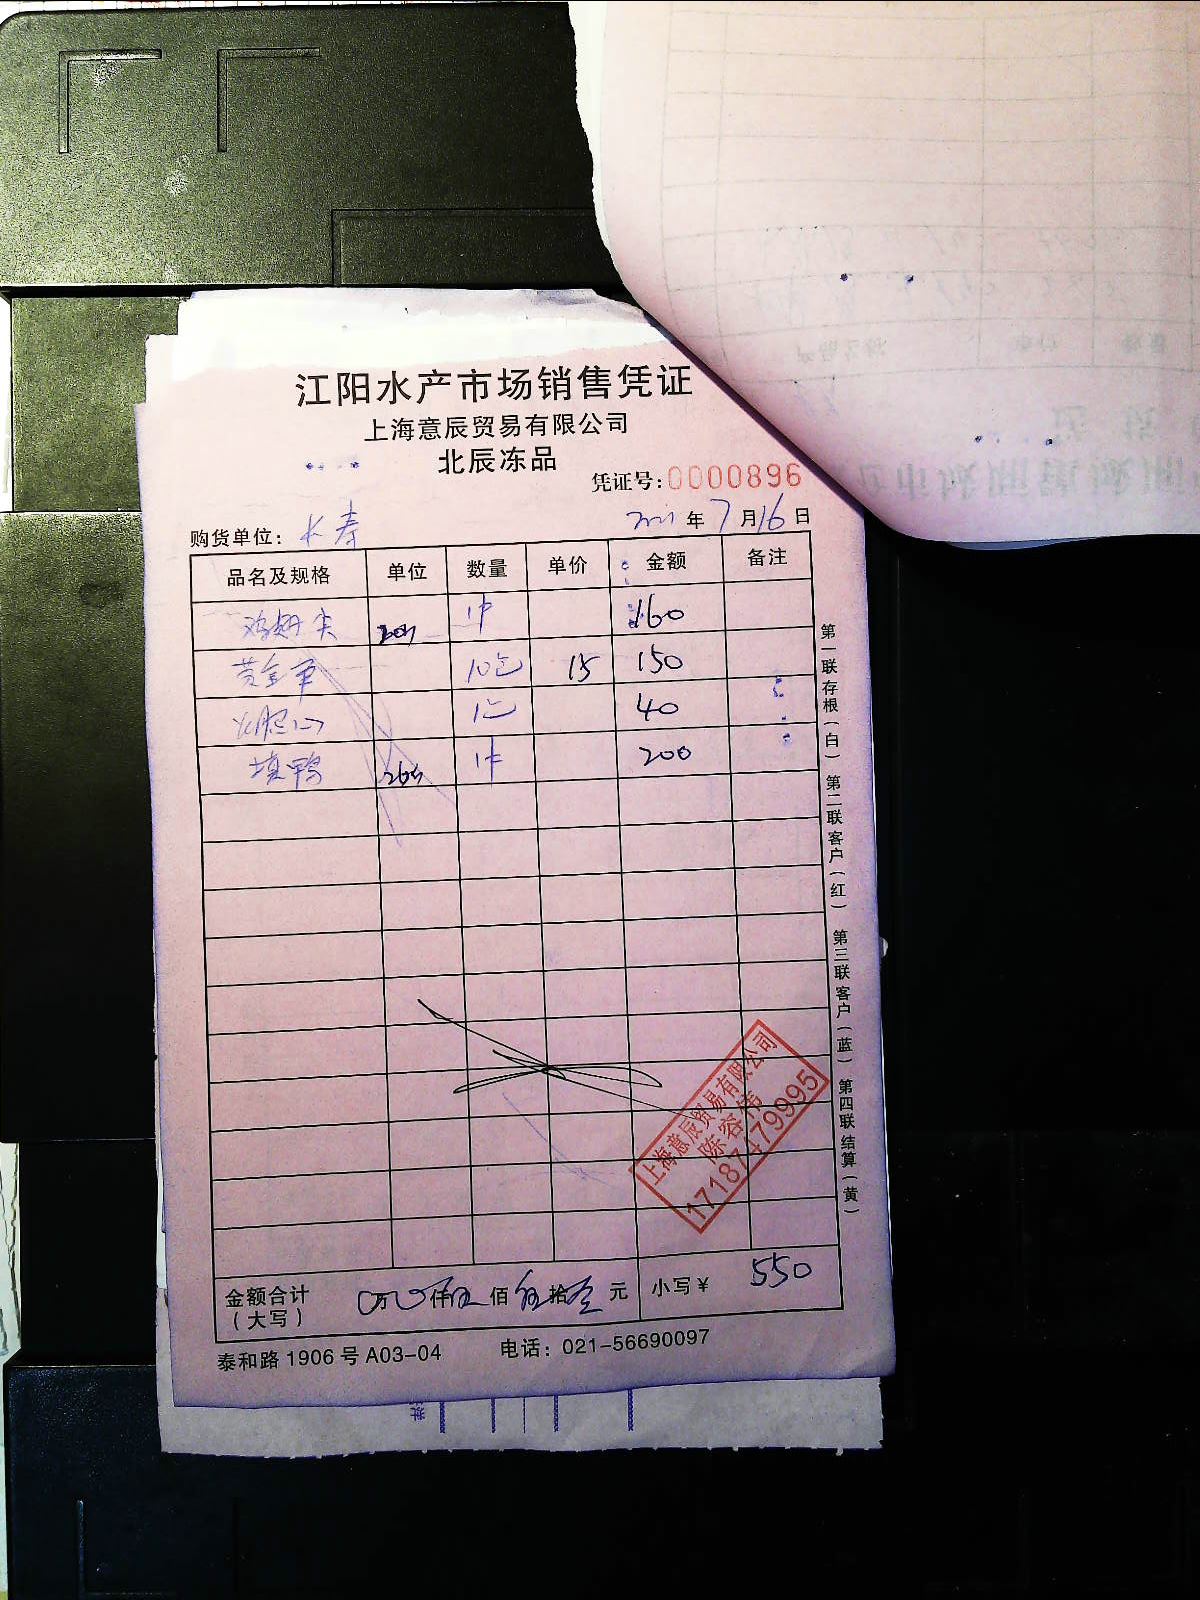 江阳水产市场销售凭证
上海意辰贸易有限公司
北辰冻品
凭证号:0000896
购货单位: 长寿 2021年7月16日
品名及规格 单位 数量 单价 金额 备注
鸡翅尖 20斤 1件 160
黄金 10包 15 150
1包 40
填鸭 1件 200
第一联存根(白) 第二联客户(红) 第三联客户(蓝) 第四联结算(黄)
上海意辰贸易有限公司
陈容伟
17187479995
金额合计(大写) 0万0仟伍佰伍拾元 小写¥ 550
泰和路1906号A03-04 电话: 021-56690097